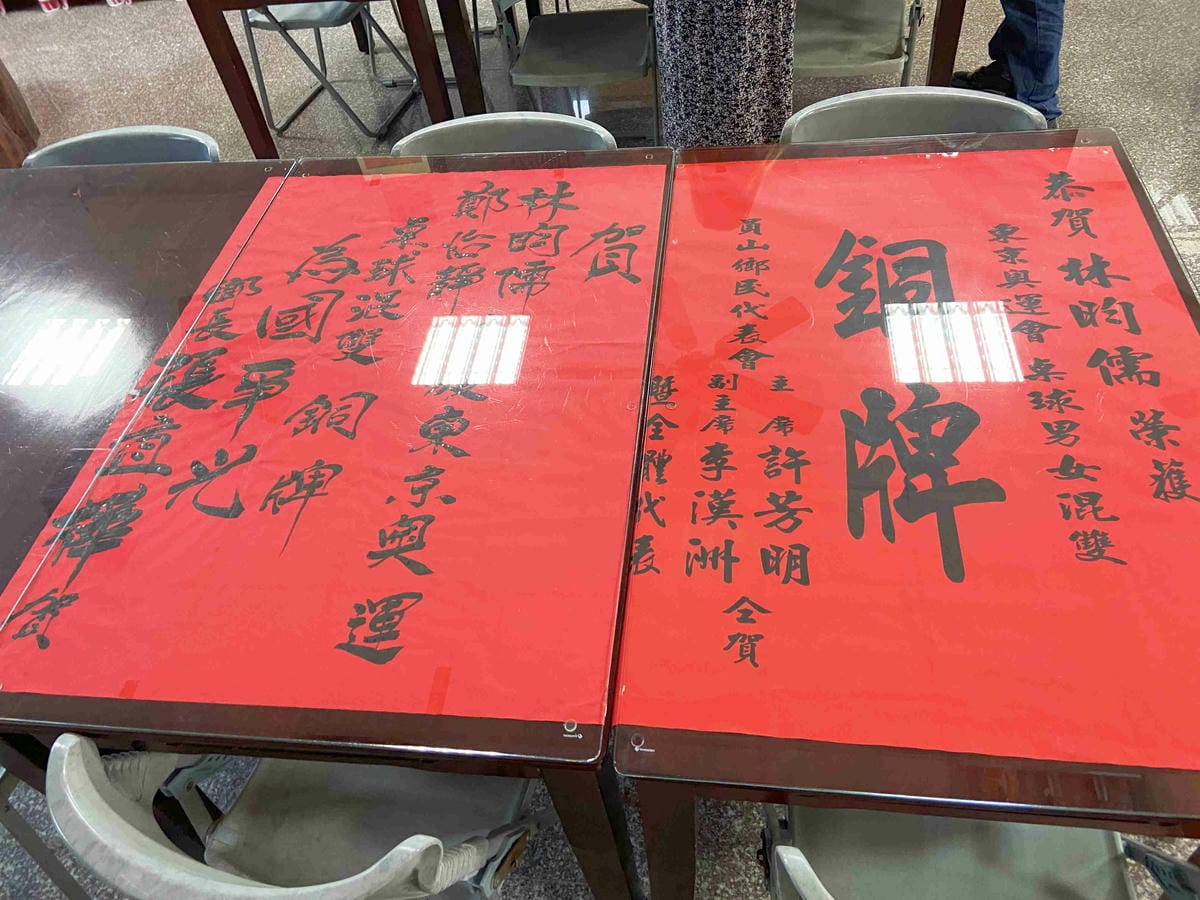 恭賀林昀儒榮獲
東京奧運會桌球男女混雙
銅牌
員山鄉民代表會
主席許芳明
副主席李漢洲
暨全體代表
仝賀
賀
林昀儒
鄭怡靜
桌球混雙
東京奧運
銅牌
為國爭光
鄉長張宜樺賀